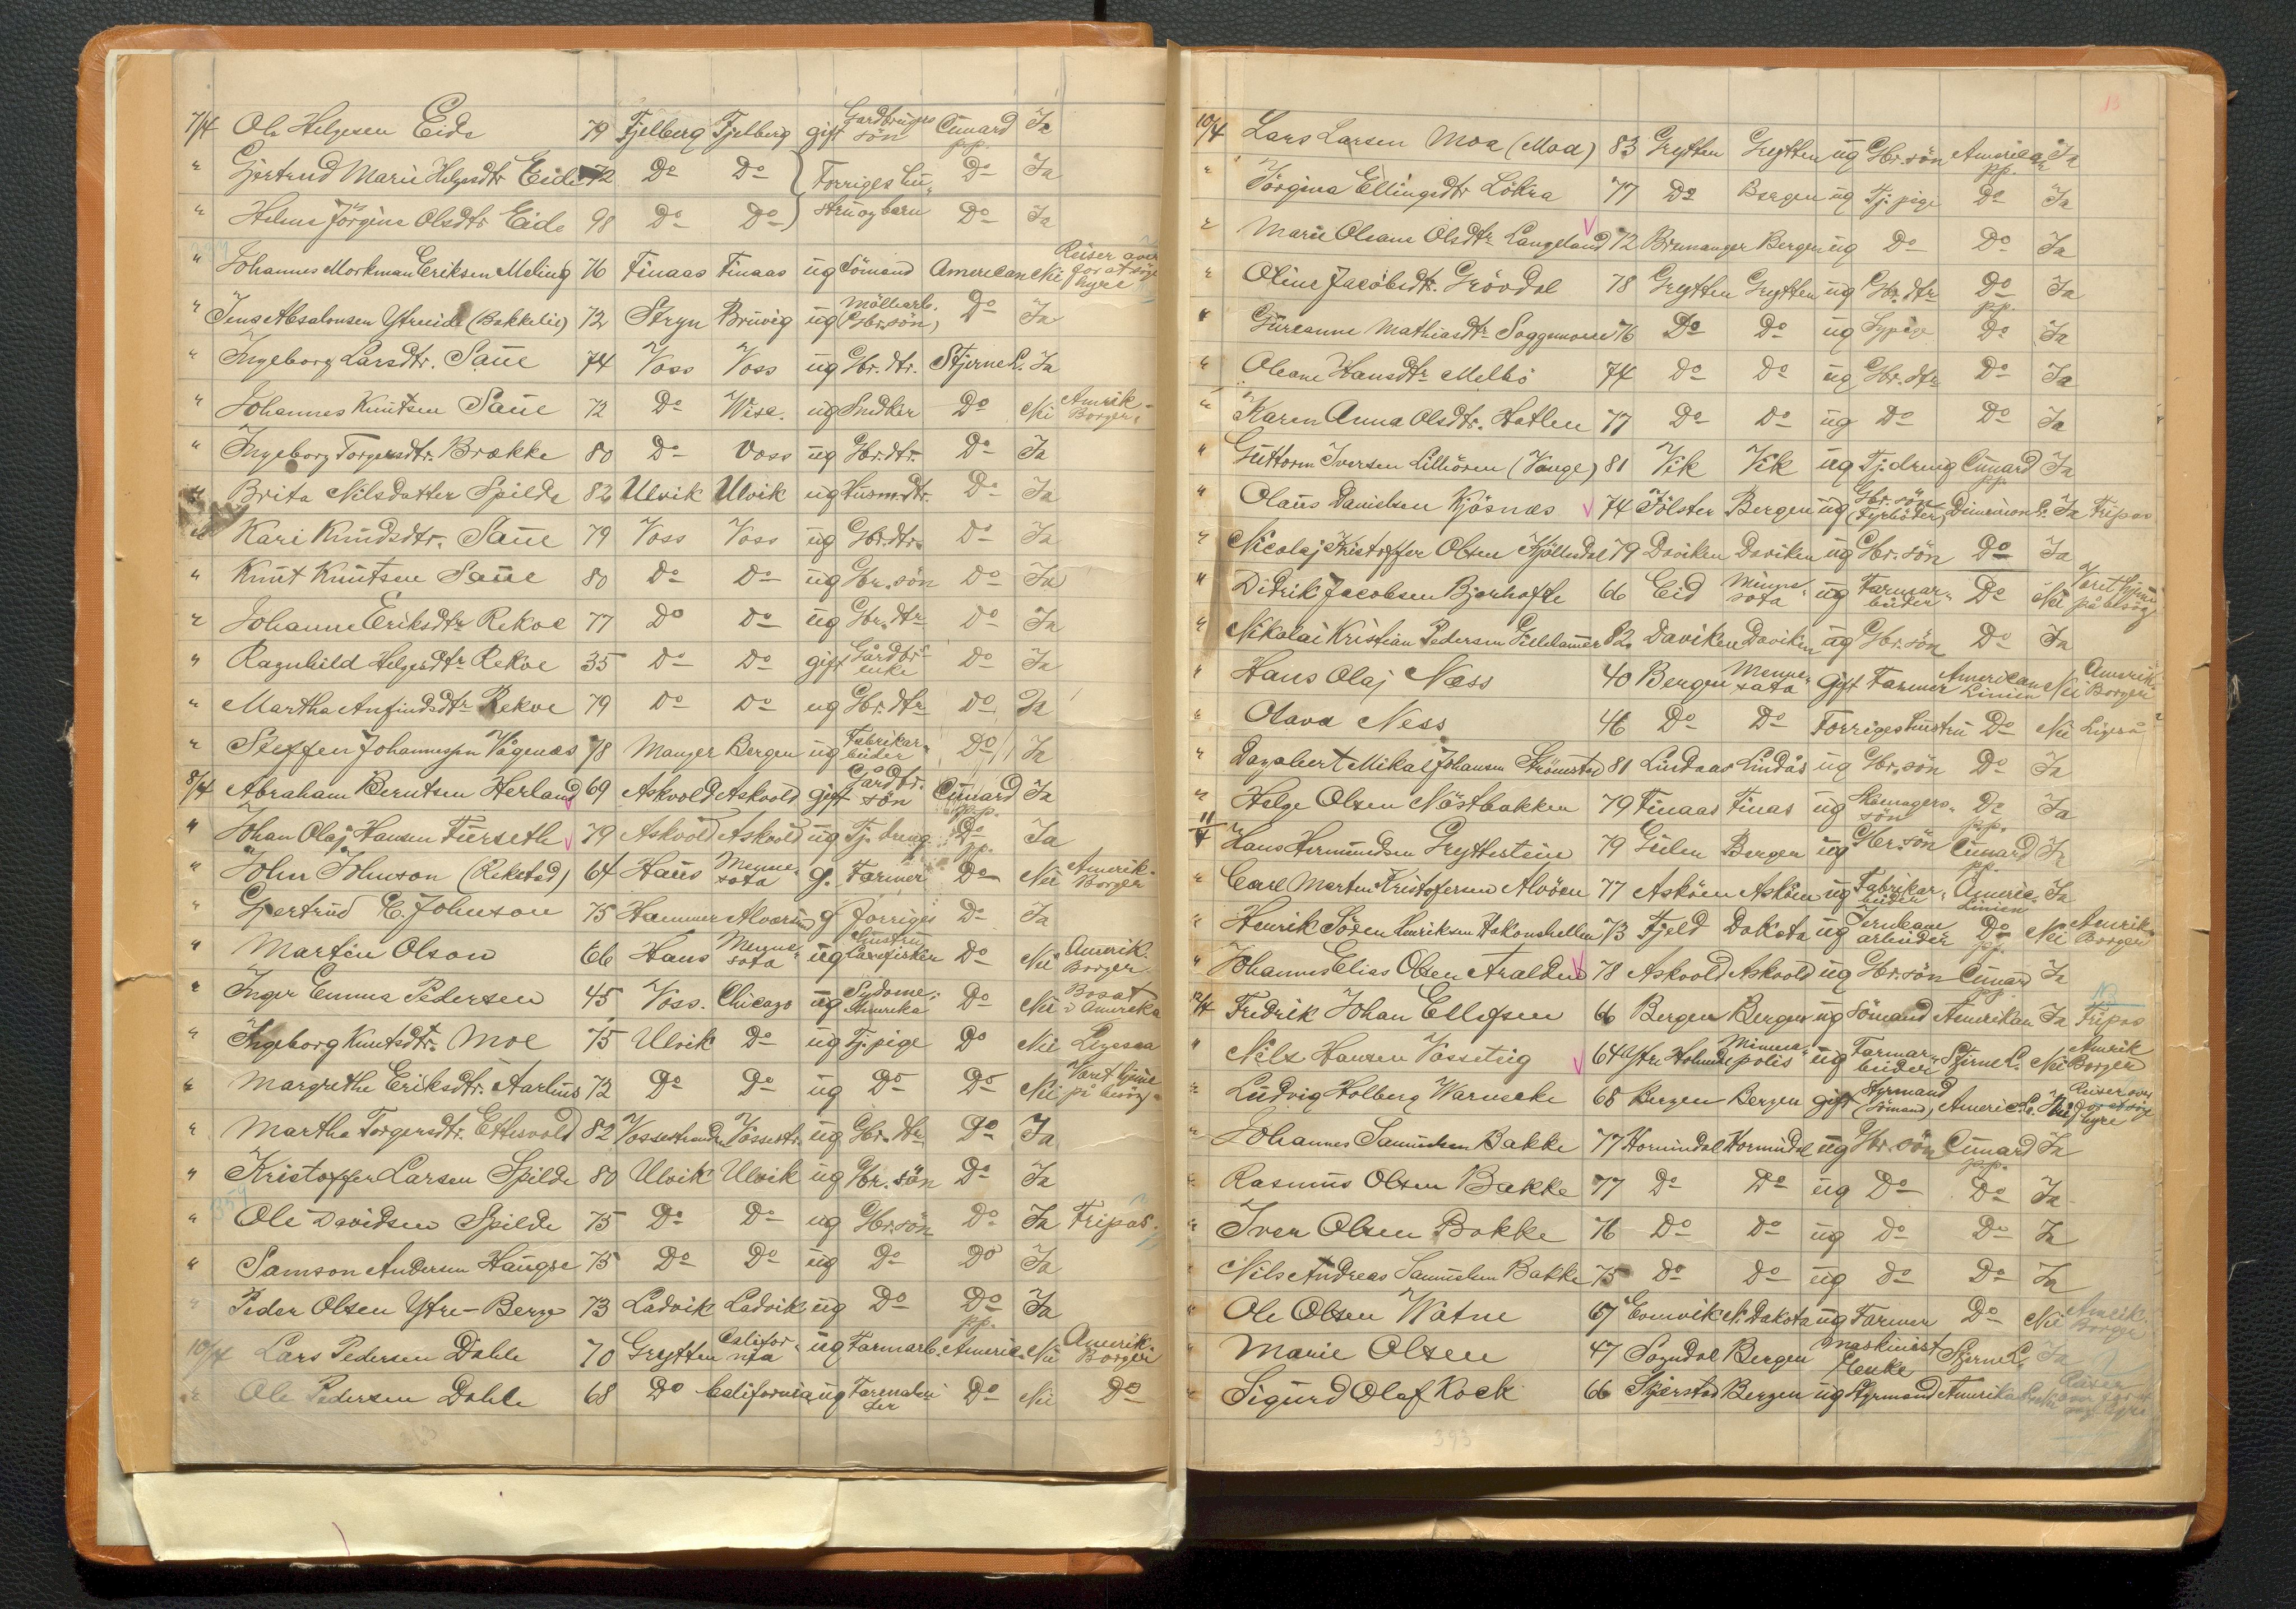 7/4 Ole Helgesen Eide 79 Fjelberg Fjelberg gift Gardbrugers sön Cunard pp. Ja
" Gjertrud Marie Helgesdtr Eide 72 Do Do } Forriges hu- Do Ja
" Helene Jörgine Olsdtr Eide 98 Do Do } stru og barn Do Ja
" Johannes Morkman Eriksen Meling 76 Finaas Finaas ug Sömand American Nei Reiser over for at söge hyre
" Jens Absalonsen Ytreeide (Bakkelie) 72 Stryn Bruvig ug Möllearb. (Gbr.sön) Do Ja
" Ingeborg Larsdtr. Saue 74 Voss Voss ug Gbr. dtr. Stjerne L. Ja
" Johannes Knutsen Saue 72 Do Wisc. ug Snedker Do Nei Amrik. Borger.
" Ingeborg Torgersdtr. Brække 80 Do Voss ug Gbr.dtr. Do Ja
" Brita Nilsdatter Spilde 82 Ulvik Ulvik ug Husm.dtr. Do Ja
" Kari Knudsdtr. Saue 79 Voss Voss ug Gbr.dtr. Do Ja
" Knut Knutsen Saue 80 Do Do ug Gbr. sön Do Ja
" Johanne Eriksdtr Rekve 77 Do Do ug Gbr. dtr Do Ja
" Ragnhild Helgesdtr Rekve 35 Do Do gift Gårdbr- enke Do Ja
" Martha Anfindsdtr Rekve 79 Do Do ug Gbr. dtr Do Ja
" Steffen Johannessen Vågenæs 78 Manger Bergen ug Fabrikar- beider Do Ja
8/4 Abraham Berntsen Herland 69 Askvold Askvold gift Gårdbr. sön Cunard p.p. Ja
" Johan Olaj Hansen Furseth 79 Askvold Askvold ug Tj. dreng Do pp. Ja
" John Johnson (Rekstad) 64 Haus Menne- sota g. Farmer Do Nei Amerik. Borger
" Gjertrud C. Johnson 75 Hammer Alversund g forriges hustru Do Ja
" Martin Olson 66 Haus Menne- sota ug Do Nei Amerik. Borger
" Inger Emma Pedersen 45 Voss. Chicago ug Sydame. Amerika Do Nei Bosat i Amerika
" Ingeborg Knutsdtr. Moe 75 Ulvik Do ug Tj. pige Do Nei Ligesaa
" Margrethe Eriksdtr. Aarhus 72 Do Do ug Do Do Nei Været hjeme på besög
" Martha Torgersdtr. Ettesvold 82 Vossestranden Vossestr. ug Gbr. dtr Do Ja
" Kristoffer Larsen Spilde 80 Ulvik Ulvik ug Gbr. sön Do Ja
" Ole Davidsen Spilde 75 Do Do ug Gbr.sön Do Ja Fripas.
" Samson Andersen Haugse 75 Do Do ug Do Do Ja
" Peder Olsen Ytre-Berge 73 Ladvik Ladvik ug Do Do pp. Ja
10/4 Lars Pedersen Dahle 70 Grytten Califor- nia ug Farmarb. Americ. Nei Amerik. Borger
" Ole Pedersen Dahle 68 Do California ug Farmabei der Do Nei Do
363
13
10/4 Lars Larsen Moa (Moa) 83 Grytten Grytten ug Gbr. sön American pp. Ja
" Jörgina Ellingsdtr Lökra 77 Do Bergen ug Tj. pige Do Ja
" Marie Oleane Olsdtr Langeland 72 Bremanger Bergen ug Do Do Ja
" Oline Jacobsdtr. Grövdal 78 Grytten Grytten ug Gbr. dtr Do pp. Ja
" Gureanne Mathiasdtr Soggemoen 76 Do Do ug Sypige Do Ja
" Oleane Hansdtr Melbö 74 Do Do ug Gbr. dtr Do Ja
" Karen Anna Olsdtr. Hatlen 77 Do Do ug Do Do Ja
" Guttorm Iversen Lilhören (Vange) 81 Vik Vik ug Tj.dreng Cunard pp. Ja
" Olaus Danielsen Kjösnæs 74 Jölster Bergen ug Gbr. sön (Fyrböder) Dominion L. Ja Fripas
" Nicolaj Kristoffer Olsen Kjöllesdal 79 Daviken Daviken ug Gbr. sön Do Ja
" Didrik Jacobsen Bjorhofde 66 Eid Minne- sota ug Farmar- beider Do Nei Været hjeme på besög
" Nikolai Kristian Pedersen Gildhamer 82 Daviken Daviken ug Gbr.sön Do Ja
" Hans Olaj Næss 40 Bergen Menne- sota gift Farmer American Linien Nei Amerik. Borger
" Olava Ness 46 Do Do Forriges hustru Do Nei Ligeså
" Dagobert Mikal Johansen Strömstad 81 Lindaas Lindås ug Gbr. sön Do Ja
" Helge Olsen Nöstbakken 79 Finaas Finas ug Skomagers sön Do p.p. Ja
11/4 Hans Hermundsen Gryttestein 79 Gulen Bergen ug Gbr. sön Cunard pp. Ja
" Carl Martin Kristofersen Alvöen 77 Asköen Asköen ug Fabrikar- beider Americ. Linien Ja
" Henrik Sören Henriksen Hakonshellen 73 Fjeld Dakota ug Jernbane arbeider Do pp. Nei Amrik. Borger
" Johannes Elias Olsen Aralden 78 Askvold Askvold ug Gbr. sön Cunard pp. Ja
12/4 Fredrik Johan Ellefsen 66 Bergen Bergen ug Sömand Amerikan Ja Fripas
" Nils Hansen Vosseteig 64 Ytre Holmedal Minnea- polis ug Farmar- beider Stjerne L. Nei Amrik Borger
" Ludvig Holberg Warnecke 68 Bergen Bergen gift Styrmand (Sömand) Americ L. Nei Reiser over for at söge hyre
" Johannes Samuelsen Bakke 77 Hornindal Hornindal ug Gbr. sön Cunard p.p. Ja
" Rasmus Olsen Bakke 77 Do Do ug Do Do Ja
" Iver Olsen Bakke 76 Do Do ug Do Do Ja
" Nils Andreas Samuelsen Bakke 75 Do Do ug Do Do Ja
" Ole Olsen Watne 67 Evenvik N. Dakota ug Farmer Do Nei Amerik. Borger
" Marie Olsen 47 Sogndal Bergen Maskinist Enke Stjerne L. Ja
" Sigurd Olaf Kock 66 Skjerstad Bergen ug Styrmand Amerika hyre
393